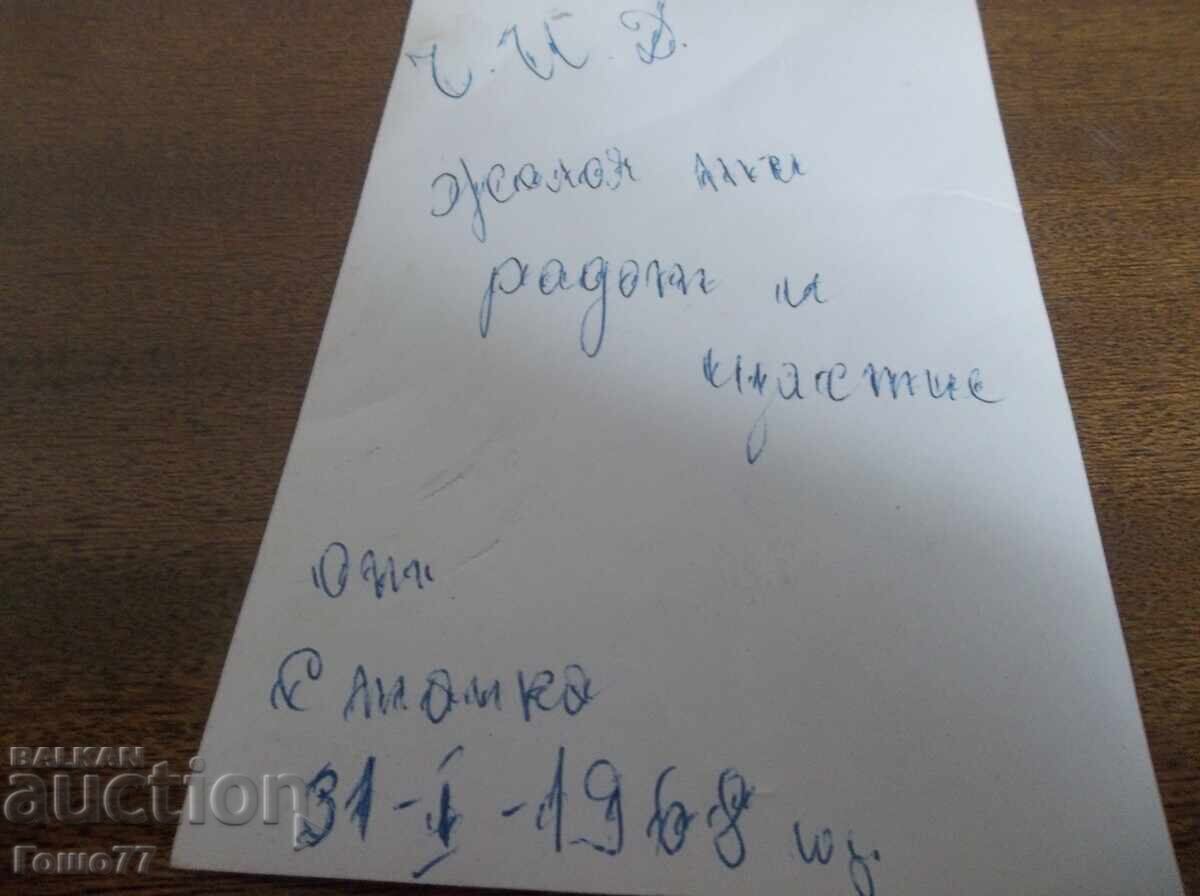 Ч.И.Д.
Желая ти
радост и
щастие
от
Стамка
31-I-1968 год.
BALKAN
auction
Гошо77